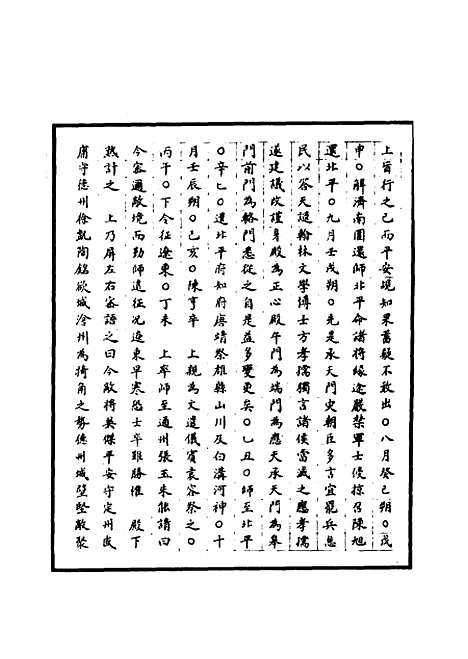 上旨行之已而平安覘知果蓄疑不敢出○八月癸巳朔○戊
申○解濟南圍還師北平命諸將緣途嚴禁軍士侵掠召陳旭
還北平○九月壬戌朔○先是承天門災朝臣多言宜罷兵息
民以答天譴翰林文學博士方孝孺獨言諸侯當滅之應孝孺
遂建議改謹身殿為正心殿午門為端門為應天承天門為皋
門前門為輅門悉從之自是益多變更矣○乙丑○師至北平
○辛巳○遣北平府知府唐靖祭雄縣山川及白溝河神○十
月壬辰朔○己亥○陳亨卒　上親為文遣儀賓袁容祭之○
丙午○下令征遼東○丁未　上率師至通州張玉朱能請曰
今密邇敵境而勤師遠征况遼東早寒恐士卒難勝惟　殿下
熟計之　上乃屏左右密語之曰今敵將英傑平安守定州盛
庸守德州徐凱陶銘欲城滄州為掎角之勢德州城壁堅敵聚